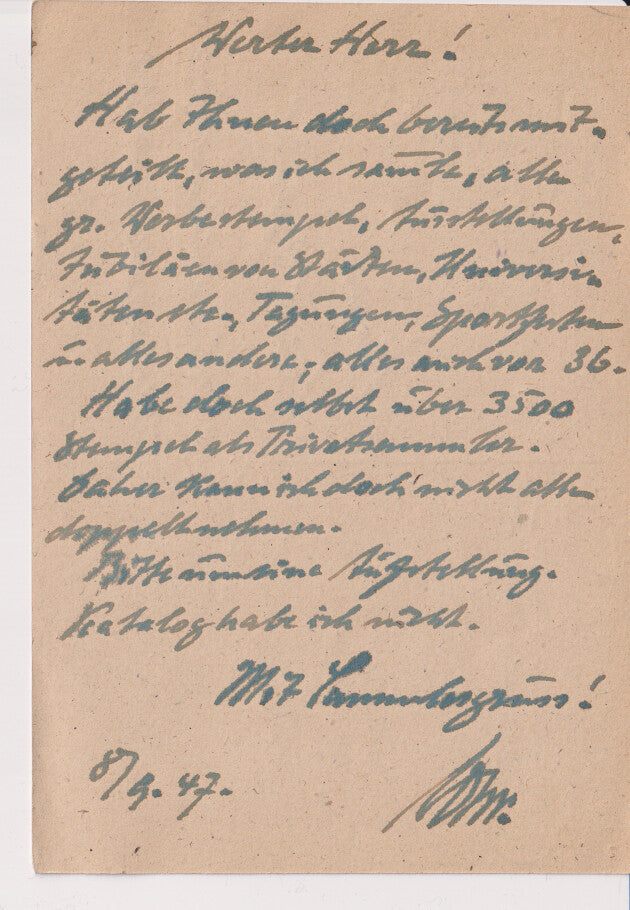 Werter Herr!
Hab Ihnen doch bereits mit-
geteilt, was ich samle, alle
gr. Werbestempel, Ausstellungen,
Jubiläen von Städten, Universi-
täten etc., Tagungen, Sportfesten
u. alles andere, alles auch vor 36.
Habe doch selbst über 3500
Stempel als Privatsammler.
Daher kann ich doch nicht alle
doppelt nehmen.
Bitte um eine Aufstellung.
Katalog habe ich nicht.
Mit Sammlergruss!
8/9. 47.